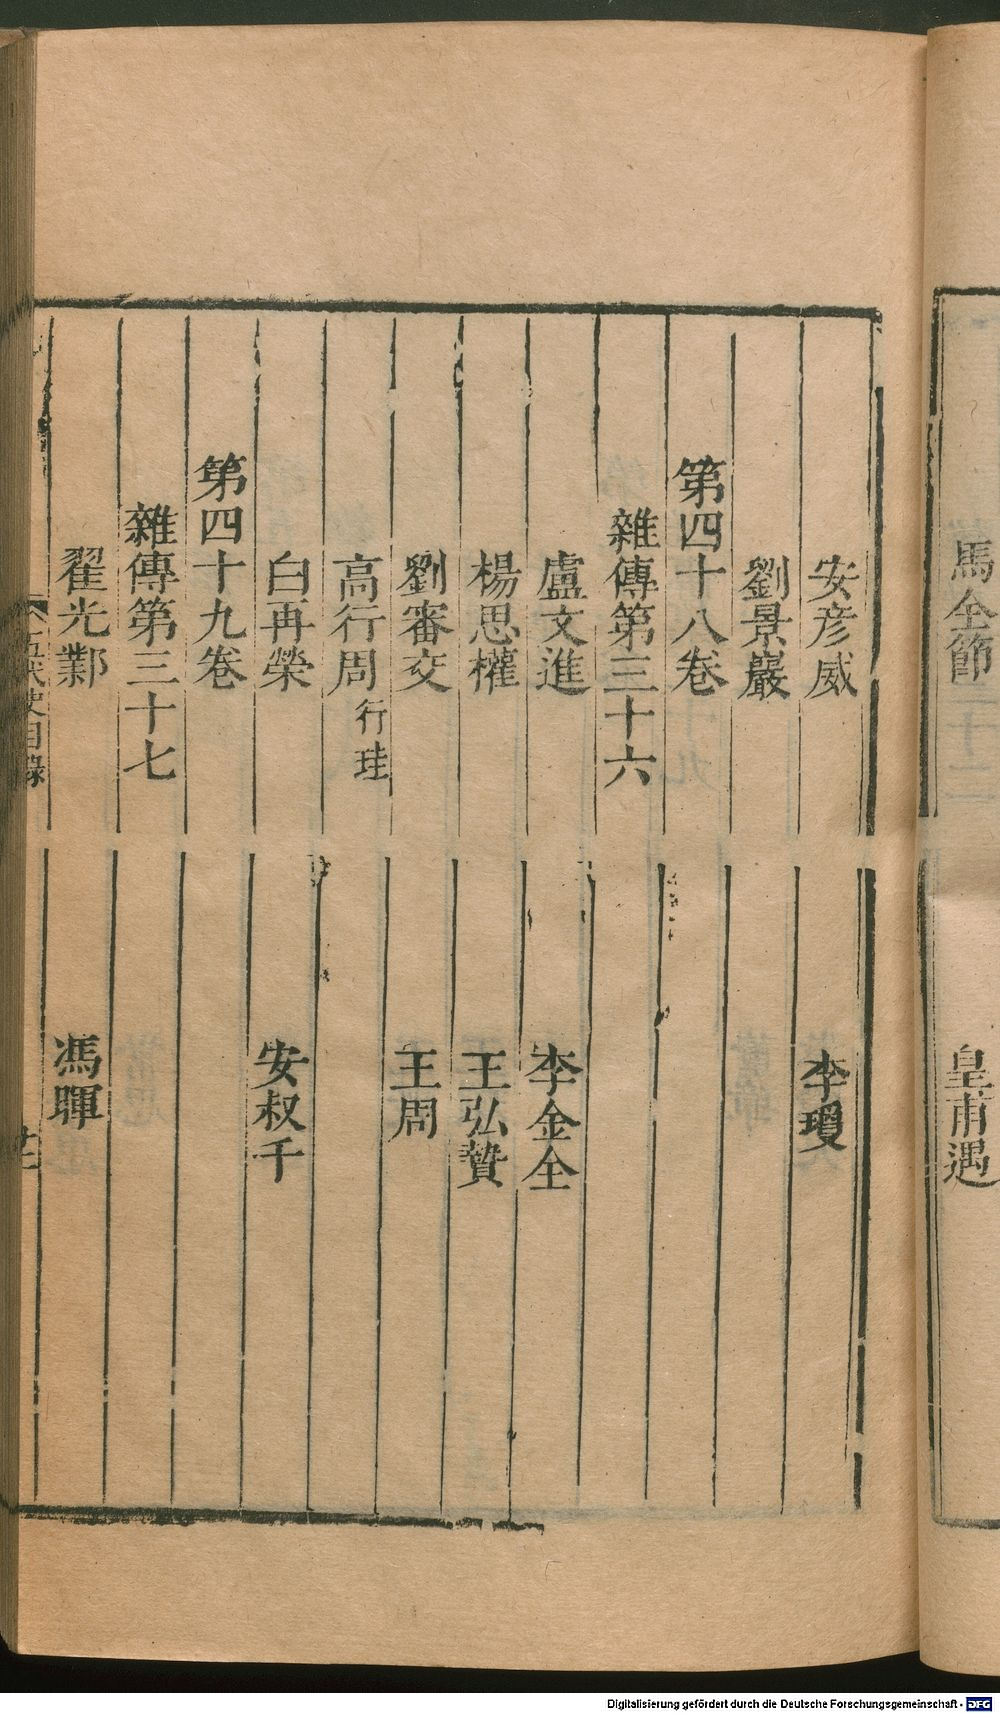 馬全節 皇甫遇
安彦威 李瓊
劉景巖
第四十八卷
雜傳第三十六
盧文進 李金全
楊思權 王弘贄
劉審交 王周
高行周 行珪
白再榮 安叔千
第四十九卷
雜傳第三十七
翟光鄴 馮暉
五代史目錄 廿一
Digitalisierung gefördert durch die Deutsche Forschungsgemeinschaft - DFG